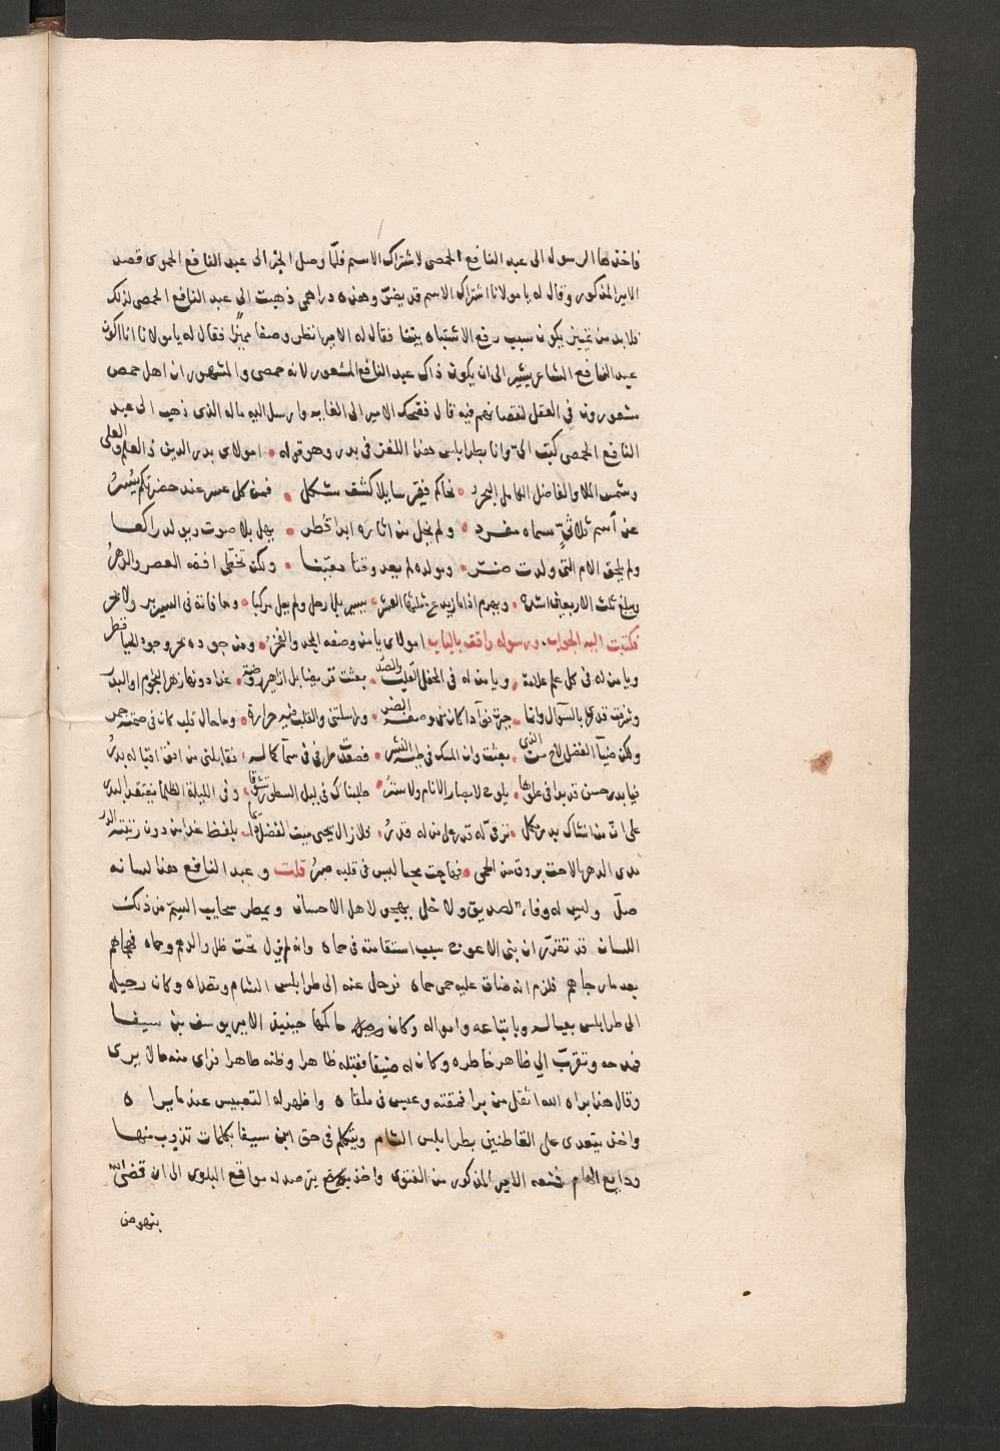 فاخذها الرسول الى عبد النافع الحمصى لاشتراك الاسم فلمّا وصل الخبر الى عبد النافع الحموى قصد
الامير المذكور وقال له يا مولانا اشتراك الاسم قد يضرّ وهذه دراهمى ذهبت الى عبد النافع الحمصى لذلك
فلا بد من تمييز يكون سبب رفع الاشتباه بيننا فقال له الامير انظر وصفا مميّزا فقال له يا مولانا انا اكون
عبد النافع الشاعر يشير الى ان يكون ذاك عبد النافع المشعور لانه حمصى والمشهور ان اهل حمص
مشعورون فى العقل لنقصانهم فيه قال فضحك الامير الى الغايه وارسل اليه ماله الذى ذهب الى عبد
النافع الحمصى كتب الىّ وانا بطرابلس هذا اللغز فى بدر وهو قوله امولاى بدر الدين ذ العلم والعلى
وشمس الملا والفاضل الكامل البحر نحاكم فقير سايلا كشف مشكل فمن كل عسر عند حضرتكم يُسرُ
عن اسم ثلاثىّ سماه مفرد ولم يخل من اثاره ابدا قطر يهل بلا صوت ويولد راكعا
ولم يلق الام التى ولدت ضرّ ومولده لم يعد وقتا معيّنا ولكن تخطّى افقه العصر والدهرُ
ويبلغ ثلث الاربعين اشدّه ويهرم اذا ما زيد ع ثلثها العشر يسير بلا رجل ولم يعل مركبا وما فاته فى السير بر ولا بحر
فكتبت اليه الجواب ورسوله واقف بالباب امولاى يا من وصفه المجد والفخرُ ومن جوده بحر وجود الحيا قطر
ويا من له فى كل علم علامة ويا من له فى المحفل القلب والصدر بعثت قريضا بل ازاهر روضة غدا دونها زهر النجوم او البدر
وشرفت قدرى بالسؤال وانما جبرت فؤادا كان من وصفه الكسر وراسلتنى والقلب فيه حرارة وما حال قلب كان فى ضمنه جمر
ولكن ضيآ الفضل لاح من الذى بعثت وان المسك فى طيه النشر فصعدت طرفى فى سمآ كماله فقابلنى من افق اقباله بدرُ
فيا بدر حسن قد بدا فى علوها يلوح لابصار الانام ولا ستر طلبناك فى ليل السطور تشوقا وفى الليلة الظلمآ يفتقد البدر
على انّ من انشاك بدر مكمل ترقى له قد جل من له قدرُ فلا زال يحيى ميت الفضل دايما بلفظ غدا من دون رتبته الدر
مدى الدهر ما لاحت بروق من الحمى فهاجت محبا ليس فى قلبه صبرُ قلت وعبد النافع هذا لسانه
صلّ وليس له وفاء لصديق ولا خلى يهجو لاهل الاحسان ويمطر سحايب السمّ من ذلك
اللسان قد تقرّر ان بنى الاعوج سبب استقامته فى حماه وانه لم يزل تحت ظل والدهم وحماه فهجاهم
بعد ما رجاهم فلزم انه ضاق عليه حمى حماه فرحل عنه الى طرابلس الشام وتعداه وكان رحيله
الى طرابلس بعياله وباتباعه وامواله وكان حاكمها حينيذ الامير يوسف بن سيفا
فمدحه وتقرّب الى ظاهر خاطره وكان له ضيفا فقبله ظاهرا وظنه طاهرا فراى منه ما لا يرى
وقال هذا براه الله اثقل من برا فمقته وعبس فى ملقاه واظهر له التعبيس عند ما يراه
واخذ يتعدى على القاطنين بطرابلس الشام ويتكلم فى حق ابن سيفا بكلمات تذوب منها
ودايع العام فمنعه الامير المذكور من الفتوى واخذ يترصد له مواقع البلوى الى ان قضى الله
بنهوض